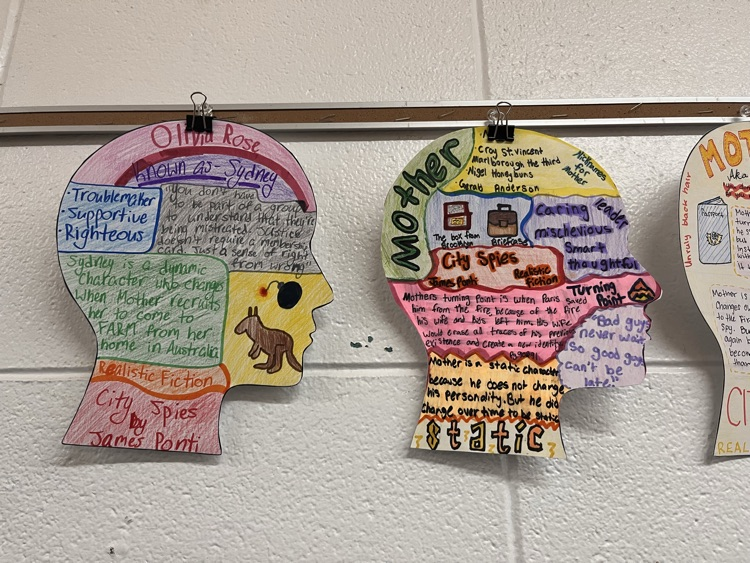 Olivia Rose
Known as - Sydney
· Troublemaker
· Supportive
Righteous
"You don't have
to be part of a group
to understand that they're
being mistreated. Justice
doesn't require a membership
card. Just a sense of right
from wrong"
Sydney is a dynamic
character who changes
when Mother recruits
her to come to
FARM from her
home in Australia
Realistic Fiction
City Spies
by
James Ponti
Mother
Croy St. Vincent
Marlborough the third
· Nigel Honeybuns
Anderson
Nicknames
for
Mother
The box from
Brooklyn
Briefcase
Caring
leader
mischevious
Smart
thoughtful
City Spies
James Ponti
Realistic
Fiction
Turning
Point
Mothers turning Point is when Paris saved
him from the fire, because of the fire
his wife and kids left him. His wife
would erase all traces of his previous
existence and create a new identity
"Bad guys
never wait
so good guys
can't be
late."
Mother is a static character
because he does not change
his personality. But he did
change over time to be static
static
MOT
Aka
Unruly black hair
Passport
Mot
turn
he s
but
Ins
with
it
Mother is
Changes o
to the Fir
Spy. Bu
again b
becom
than
CI
REAL